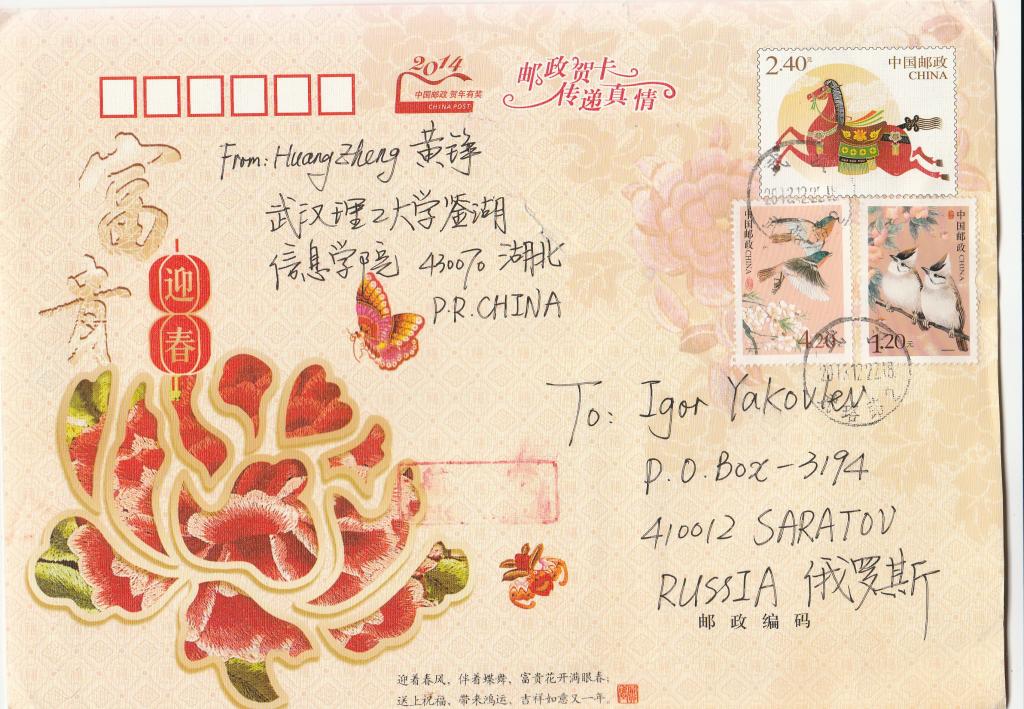 2014
中国邮政 贺年有奖
CHINA POST
邮政贺卡
传递真情
2.40元
中国邮政
CHINA
From: Huang Zheng 黄铮
武汉理工大学鉴湖
信息学院 430070 湖北
P.R.CHINA
富
贵
迎
春
中国邮政 CHINA
4.20元
中国邮政 CHINA
1.20元
2013.12.22.18
To: Igor Yakovlev
P.O.Box-3194
410012 SARATOV
RUSSIA 俄罗斯
邮政编码
迎着春风，伴着蝶舞，富贵花开满眼春；
送上祝福，带来鸿运，吉祥如意又一年。